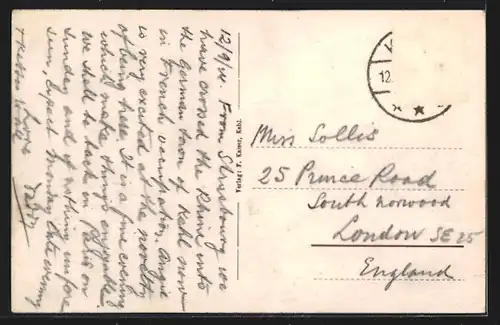 12/9/24. From Strasbourg we
have crossed the Rhine into
the German town of Kehl now
in French occupation.
is very excited at the novelty
of being here. It is a fine evening
which makes things enjoyable.
We shall be back in Paris on
Sunday and if nothing unfore
seen, expect Monday late evening
Love
Daddy
Verlag: F. Kaiser, Kehl.
12.
Miss Sollis
25 Prince Road
South Norwood
London SE 25
England